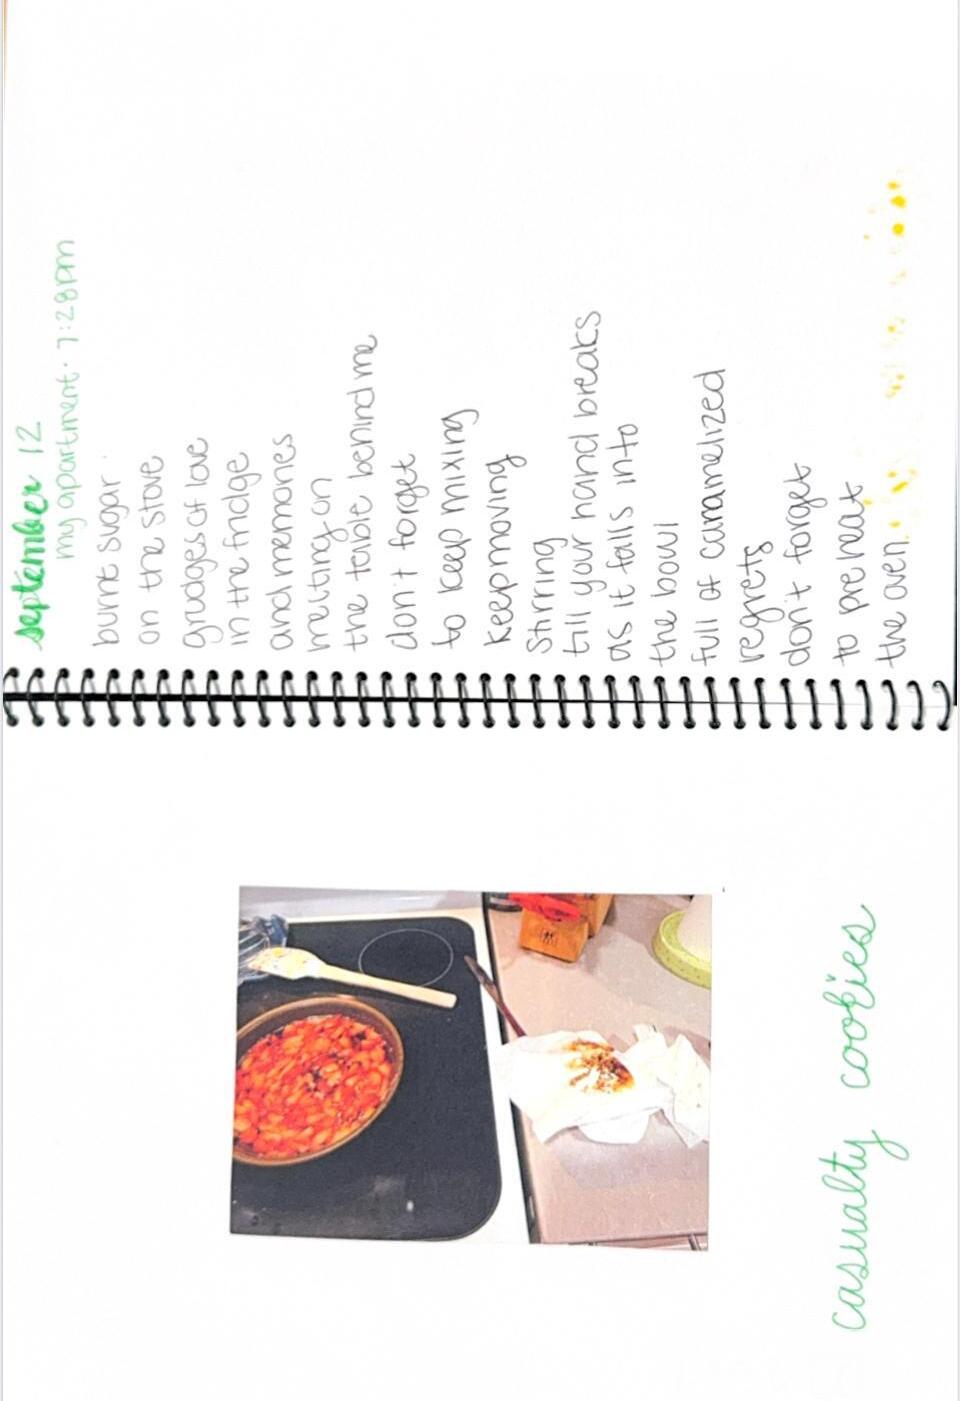 casualty cookies
september 12
my apartment · 7:28pm
burnt sugar
on the stove
grudges of love
in the fridge
and memories
melting on
the table behind me
don't forget
to keep mixing
keep moving
stirring
till your hand breaks
as it falls into
the bowl
full of caramelized
regrets
don't forget
to preheat
the oven